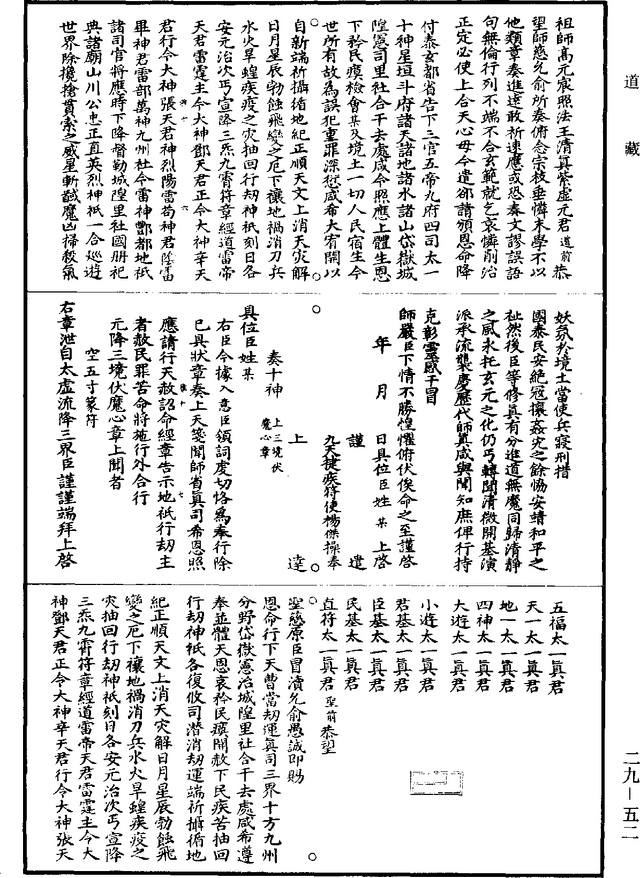 道藏
祖師高元宸照法王清真紫虛元君道前恭
望師慈允俞所奏俯念宗枝垂憐末學不以
他類章奏進達敢祈速應或恐奏文謬誤語
句無倫行列不端不合玄範就乞哀憐削治
正定必使上合天心毋令遣卻請頒恩命降
付泰玄都省告下三官五帝九府四司太一
十神星垣斗府諸天諸地諸水諸山岱嶽城
隍憲司里社合干去處咸令照應上體生恩
下矜民瘼檢會某及境土一切人民宿生今
世所有故為誤犯重罪深愆咸希大宥開以
自新端祈攝循地紀正順天文上消天灾解
日月星辰勃蝕飛變之厄下禳地禍消刀兵
水火旱蝗疾疫之灾抽回行劫神祇刻日各
安元治次丐宣降三炁九霄符章經道雷帝
天君雷霆主令大神鄧天君正令大神辛天
君行令大神張天君神烈陽雷苟神君陰雷
畢神君雷部萬神九州社令雷神酆都地祇
諸司官將應時下降督勒城隍里社國册祀
典諸廟山川公忠正直英烈神祇一合巡遊
世界除攙搶貫索之威星斬馘魔凶掃殺氣
妖氛於境土當使兵寢刑措
國泰民安絕寇攘姦宄之餘恊安靖和平之
祉然後臣等修真有分進道無魔同歸清靜
之風永托玄元之化仍丐轉聞清微開基演
派承流襲慶歷代師真咸與聞知庶俾行持
克彰靈感干冒
師嚴臣下情不勝惶懼俯伏俟命之至謹啓
年月日具位臣姓某上啓
謹遣
九天捷疾符使楊傑操奉
上達
奏十神上三境伏魔心章
具位臣姓某
右臣今據入意臣領詞虔切恪為奉行除
已具狀章奏上天箋聞師省真司希恩照
應請行天赦詔命經章告示地祇行劫主
者赦民罪苦命將施行外合行
元降三境伏魔心章上聞者
空五寸篆符
右章泄自太虛流降三界臣謹謹端拜上啓
五福太一真君
天一太一真君
地一太一真君
四神太一真君
大遊太一真君
小遊太一真君
君基太一真君
臣基太一真君
民基太一真君
直符太一真君聖前恭望
聖慈原臣冒瀆允俞愚誠即賜
恩命行下天曹當劫運真司三界十方九州
分野岱嶽憲治城隍里社合干去處咸希遵
奉並體天恩哀矜民瘼開赦下民疾苦抽回
行劫神祇各復攸司潛消劫運端祈攝循地
紀正順天文上消天灾解日月星辰勃蝕飛
變之厄下禳地禍消刀兵水火旱蝗疾疫之
灾抽回行劫神祇刻日各安元治次丐宣降
三炁九霄符章經道雷帝天君雷霆主令大
神鄧天君正令大神辛天君行令大神張天
二九—五二